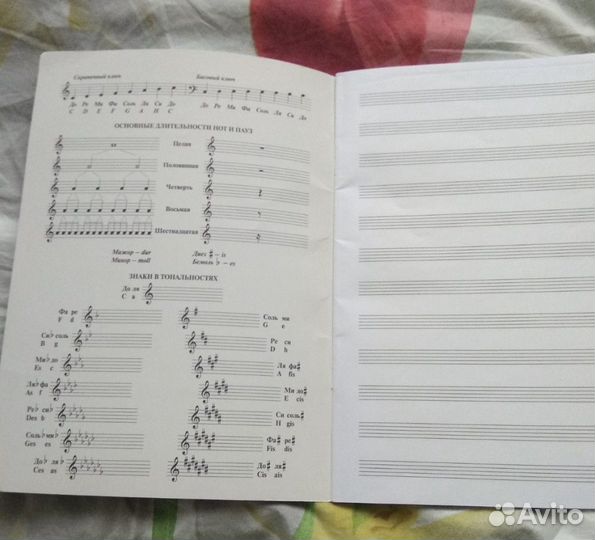 Скрипичный ключ Басовый ключ
До Ре Ми Фа Соль Ля Си До До Ре Ми Фа Соль Ля Си До
C D E F G A H C
ОСНОВНЫЕ ДЛИТЕЛЬНОСТИ НОТ И ПАУЗ
Целая
Половинная
Четверть
Восьмая
Шестнадцатая
Мажор – dur Диез ♯ – is
Минор – moll Бемоль ♭ – es
ЗНАКИ В ТОНАЛЬНОСТЯХ
До ля
C a
Фа ре Соль ми
F d G e
Си♭ соль Ре си
B g D h
Ми♭ до Ля фа♯
Es c A fis
Ля♭ фа Ми до♯
As f E cis
Ре♭ си♭ Си соль♯
Des b H gis
Соль♭ ми♭ Фа♯ ре♯
Ges es Fis dis
До♭ ля♭ До♯ ля♯
Ces as Cis ais
Avito